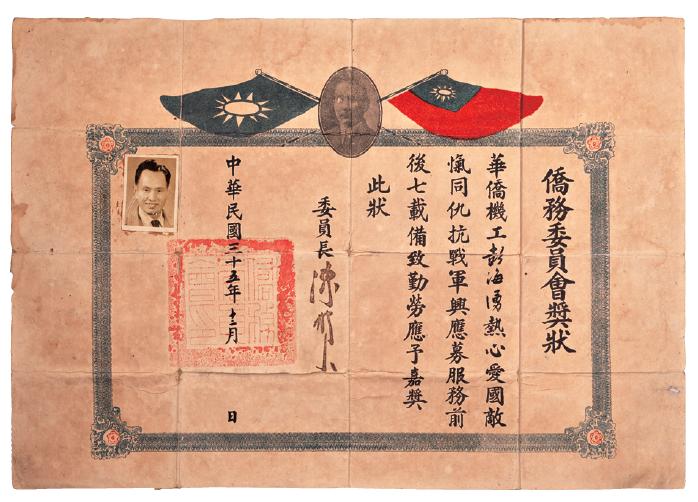 僑務委員會獎狀
華僑機工彭海湧熱心愛國敵
愾同仇抗戰軍興應募服務前
後七載備致勤勞應予嘉獎
此狀
委員長 陳樹人
中華民國三十五年十二月 日